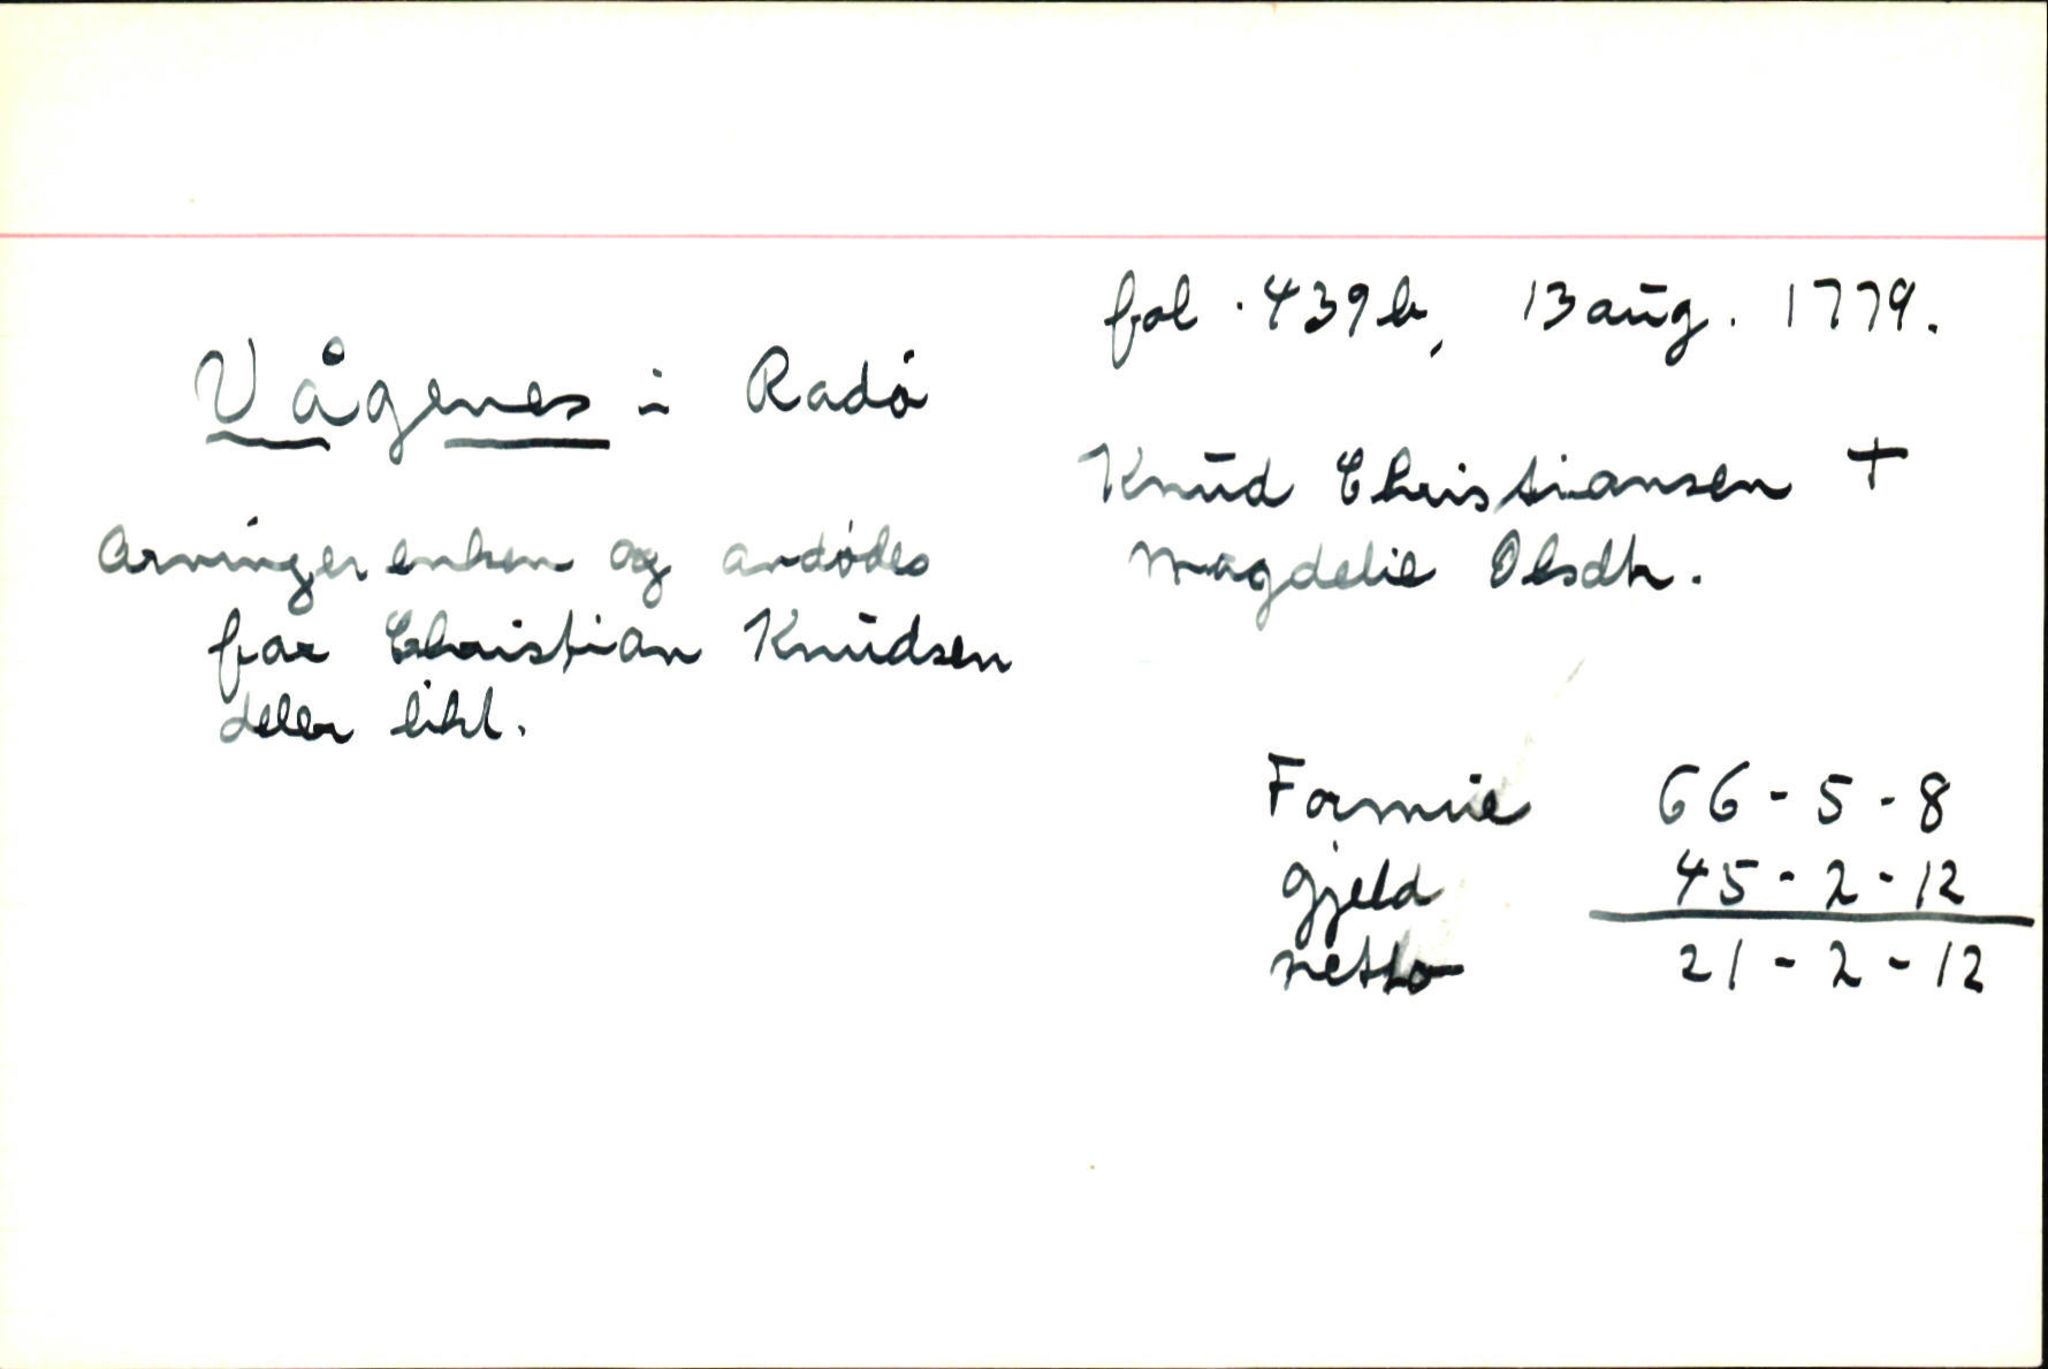 fol. 439b, 13 aug. 1779.
Vågenes i Radø
Knud Christiansen +
Magdelie Olsdtr.
Arvinger enken og avdødes
far Christian Knudsen
deler likt.
Formue 66-5-8
gjeld 45-2-12
netto 21-2-12